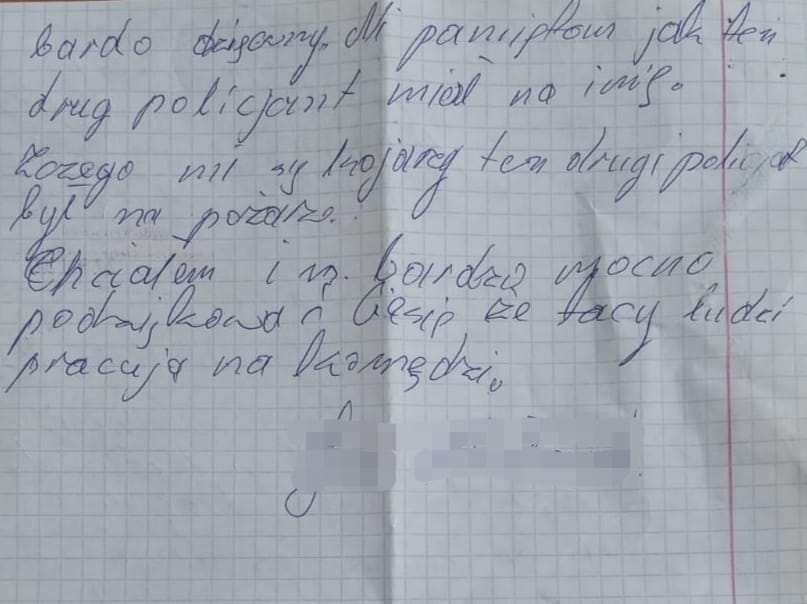 bardo dzięowny. Ni pamiętom jak ten
drug policjant miał na imię.
mi sy kojarzy ten drugi policjat
był na pożarze.
Chciałem i m. bardzo mocno
podziękować Cięsię że tacy ludzi
pracują na komędzi.